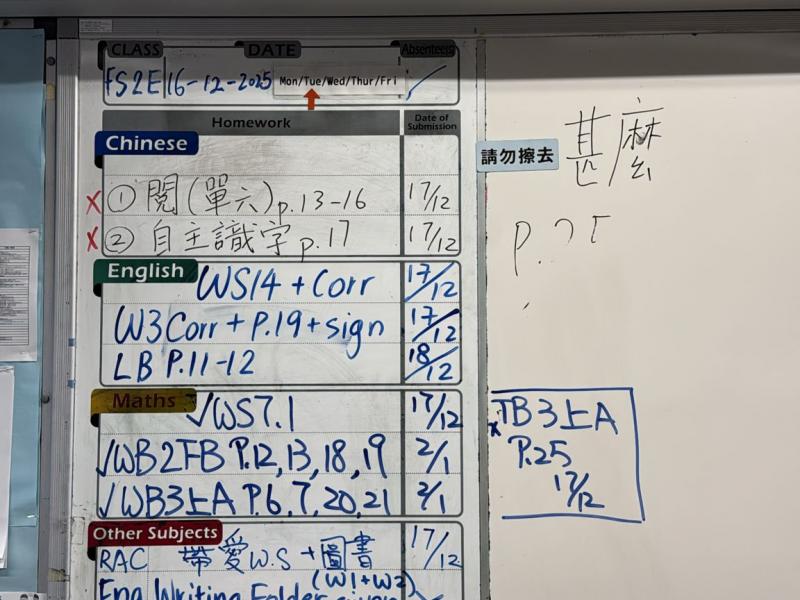 CLASS DATE Absentees
FS2E 16-12-2025 Mon/Tue/Wed/Thur/Fri ✓
Homework Date of Submission
Chinese
x ① 閱(單六)p.13-16 17/12
x ② 自主識字 p.17 17/12
English
WS14 + Corr 17/12
W3 Corr + P.19 + sign 17/12
LB P.11-12 18/12
Maths
✓WS7.1 17/12
✓WB2下B P.12, 13, 18, 19 2/1
✓WB3上A P.6, 7, 20, 21 2/1
Other Subjects
RAC 帶愛W.S + 圖書 17/12
Eng Writing Folder (W1+W2)
請勿擦去
甚麼
TB3上A
P.25
17/12